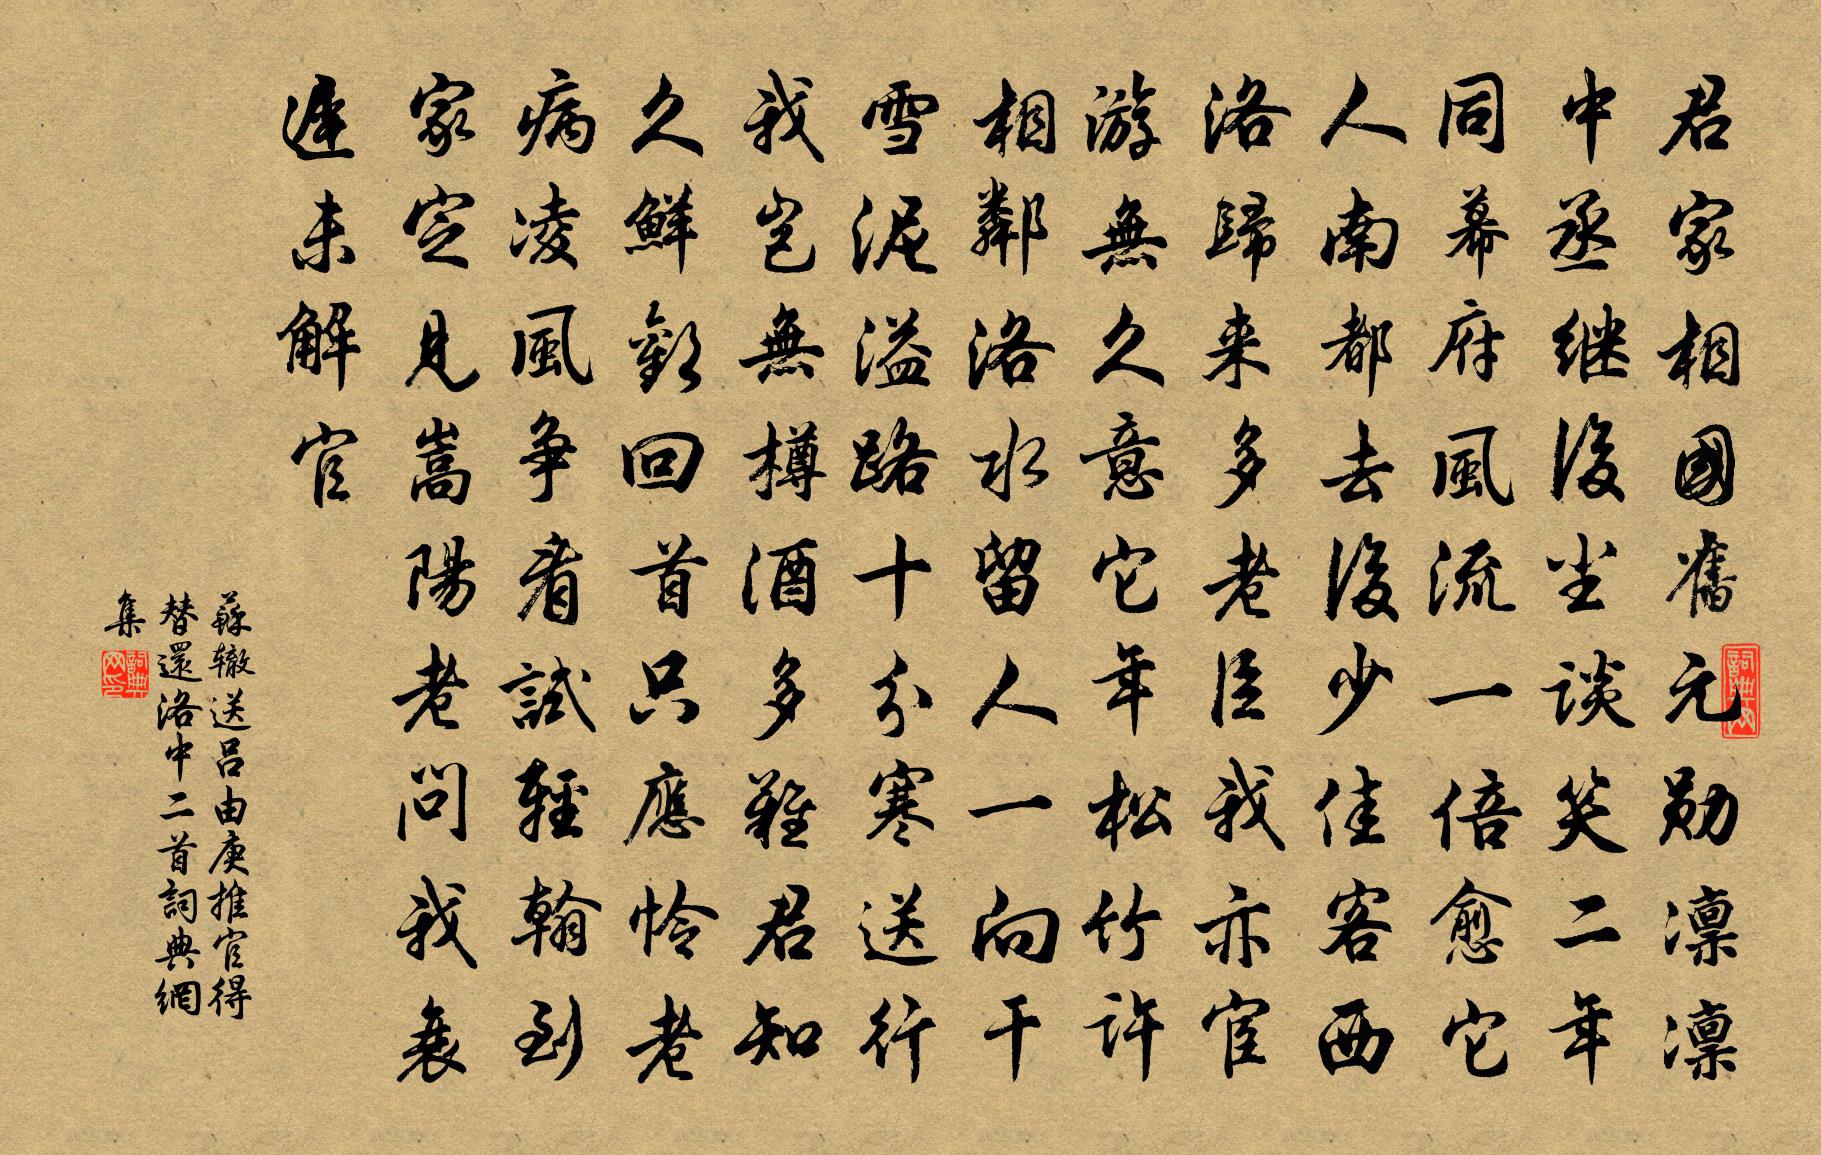 君家相國舊元勛凛凛
中丞继後尘谈笑二年
同幕府風流一倍愈它
人南都去後少佳客西
洛歸来多老臣我亦宦
游無久意它年松竹许
相鄰洛水留人一向干
雪泥溢路十分寒送行
我岂無樽酒多難君知
久鮮歡回首只應怜老
病凌風争看試輕翰到
家定見嵩陽老問我衰
遲未解官
蘇辙送呂由庚推官得
替還洛中二首詞典網
集
詞典网
詞典网印